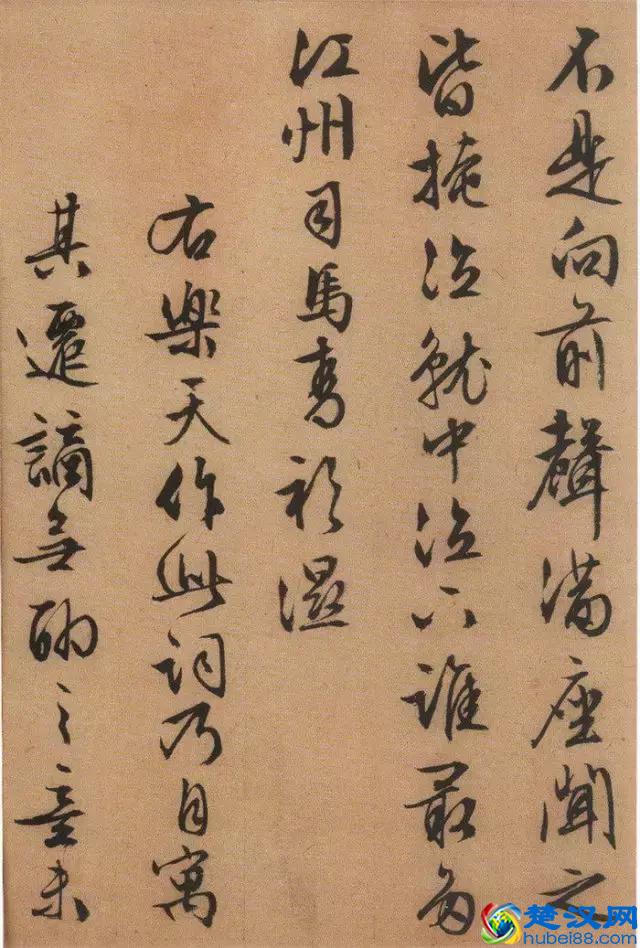 不是向前聲滿座聞之
皆掩泣就中泣下誰最多
江州司馬青衫濕
右樂天作此詞乃自寓
其遷謫無聊之意未
楚汉网
hubei88.com